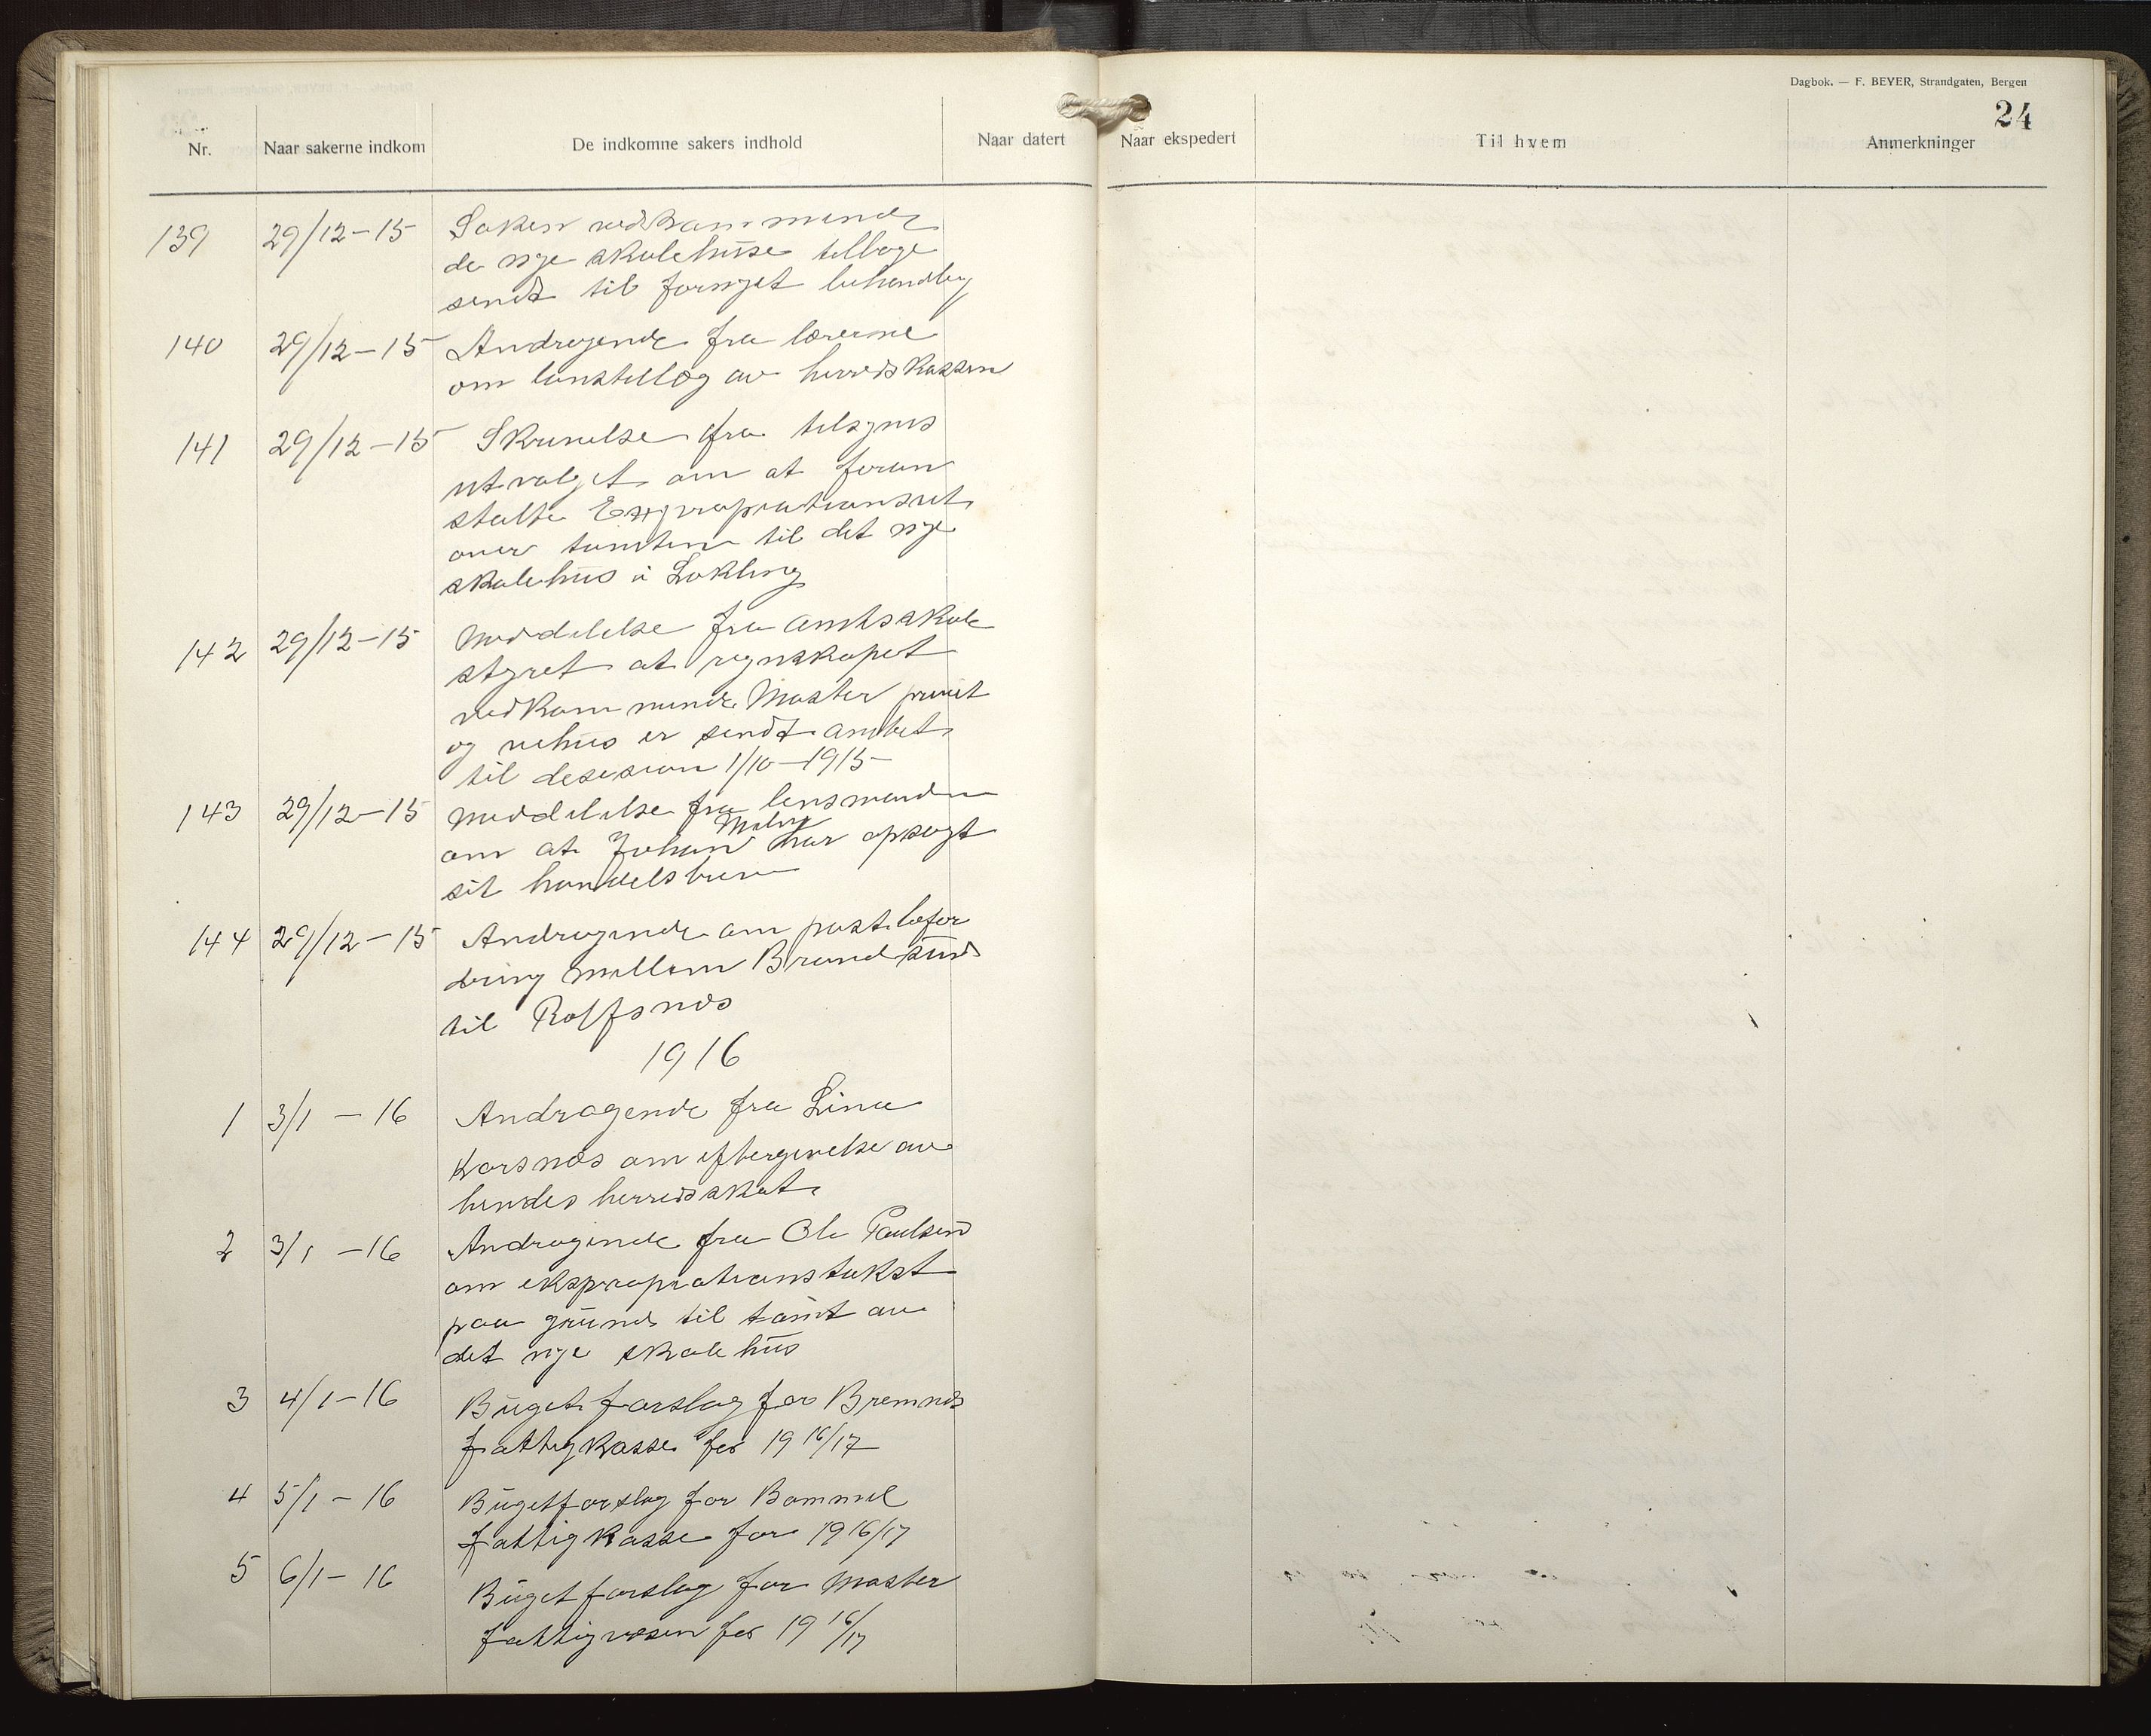 Dagbok. — F. BEYER, Strandgaten, Bergen
24
Nr. Naar sakerne indkom De indkomne sakers indhold Naar datert Naar ekspedert Til hvem Anmerkninger
139 29/12-15 Saken vedkommende
de nye skolehuse tilbage
sendt til fornyet behandling
140 29/12-15 Andragende fra lærerne
om lønstillæg av herredskassen
141 29/12-15 Skrivelse fra tilsyns
utvalget om at foran
stalte Expropriationsret
over tomten til det nye
skolehus i Løkling
142 29/12-15 Meddelelse fra amtsskole
styret at regnskapet
vedkommende Moster privet
og vehus er sendt amtet
til desision 1/10-1915
143 29/12-15 Meddelelse fra lensmanden
om at Johan Meling har opsagt
sit handelsbrev
144 29/12-15 Andragende om postbefor
dring mellem Brandsund
til Rolfsnes
1916
1 3/1-16 Andragende fra Lina
Korsnes om eftergivelse av
hendes herredsskat.
2 3/1-16 Andragende fra Ole Paulsen
om ekspropriationstakst
paa grund til tomt av
det nye skolehus
3 4/1-16 Buget forslag for Bremnes
fattigkasse for 1916/17
4 5/1-16 Bugetforslag for Bømmel
fattigkasse for 1916/17
5 6/1-16 Buget forslag for Moster
fattigvæsen for 1916/17